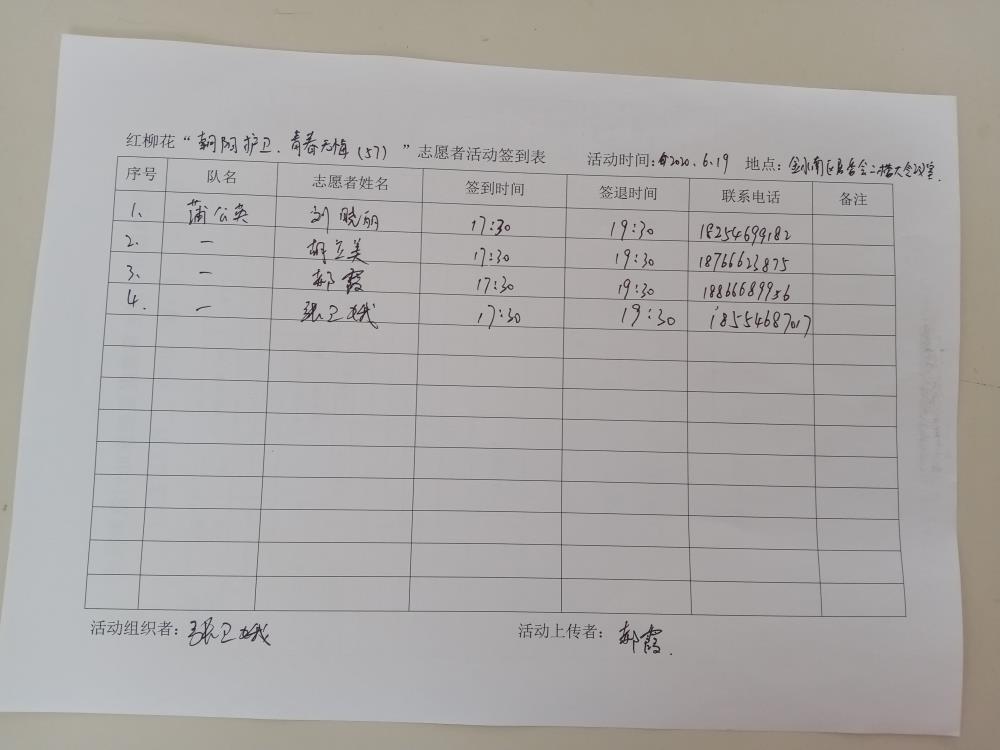 红柳花“朝阳护卫、青春无悔（57）”志愿者活动签到表 活动时间：2020.6.19 地点：金水南区居委会二楼大会议室.
序号 队名 志愿者姓名 签到时间 签退时间 联系电话 备注
1、 蒲公英 刘晓丽 17:30 19:30 18254699182
2、 一 胡立美 17:30 19:30 18766623875
3、 一 郝霞 17:30 19:30 18866689956
4. 一 张卫娥 17:30 19:30 18554687017
活动组织者：张卫娥 活动上传者：郝霞.